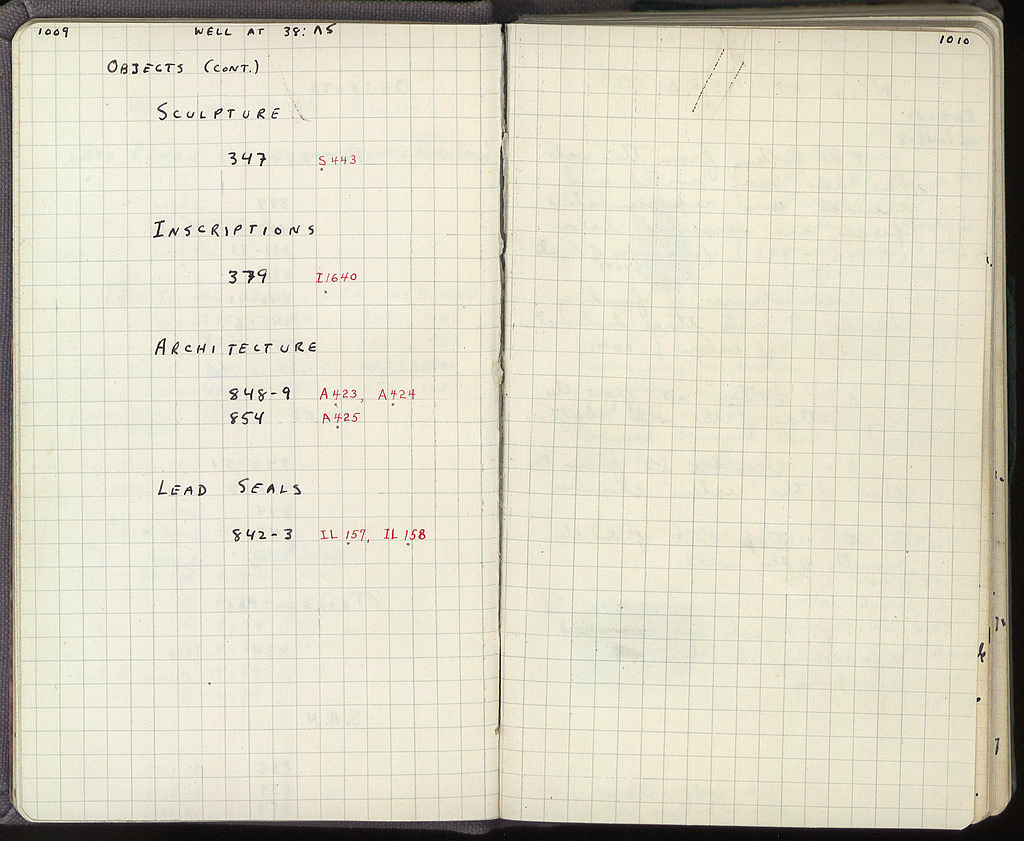 1009 WELL AT 38:ΛΣ
OBJECTS (CONT.)
SCULPTURE
347 S 443
INSCRIPTIONS
379 I 1640
ARCHITECTURE
848-9 A 423, A 424
854 A 425
LEAD SEALS
842-3 IL 157, IL 158
1010